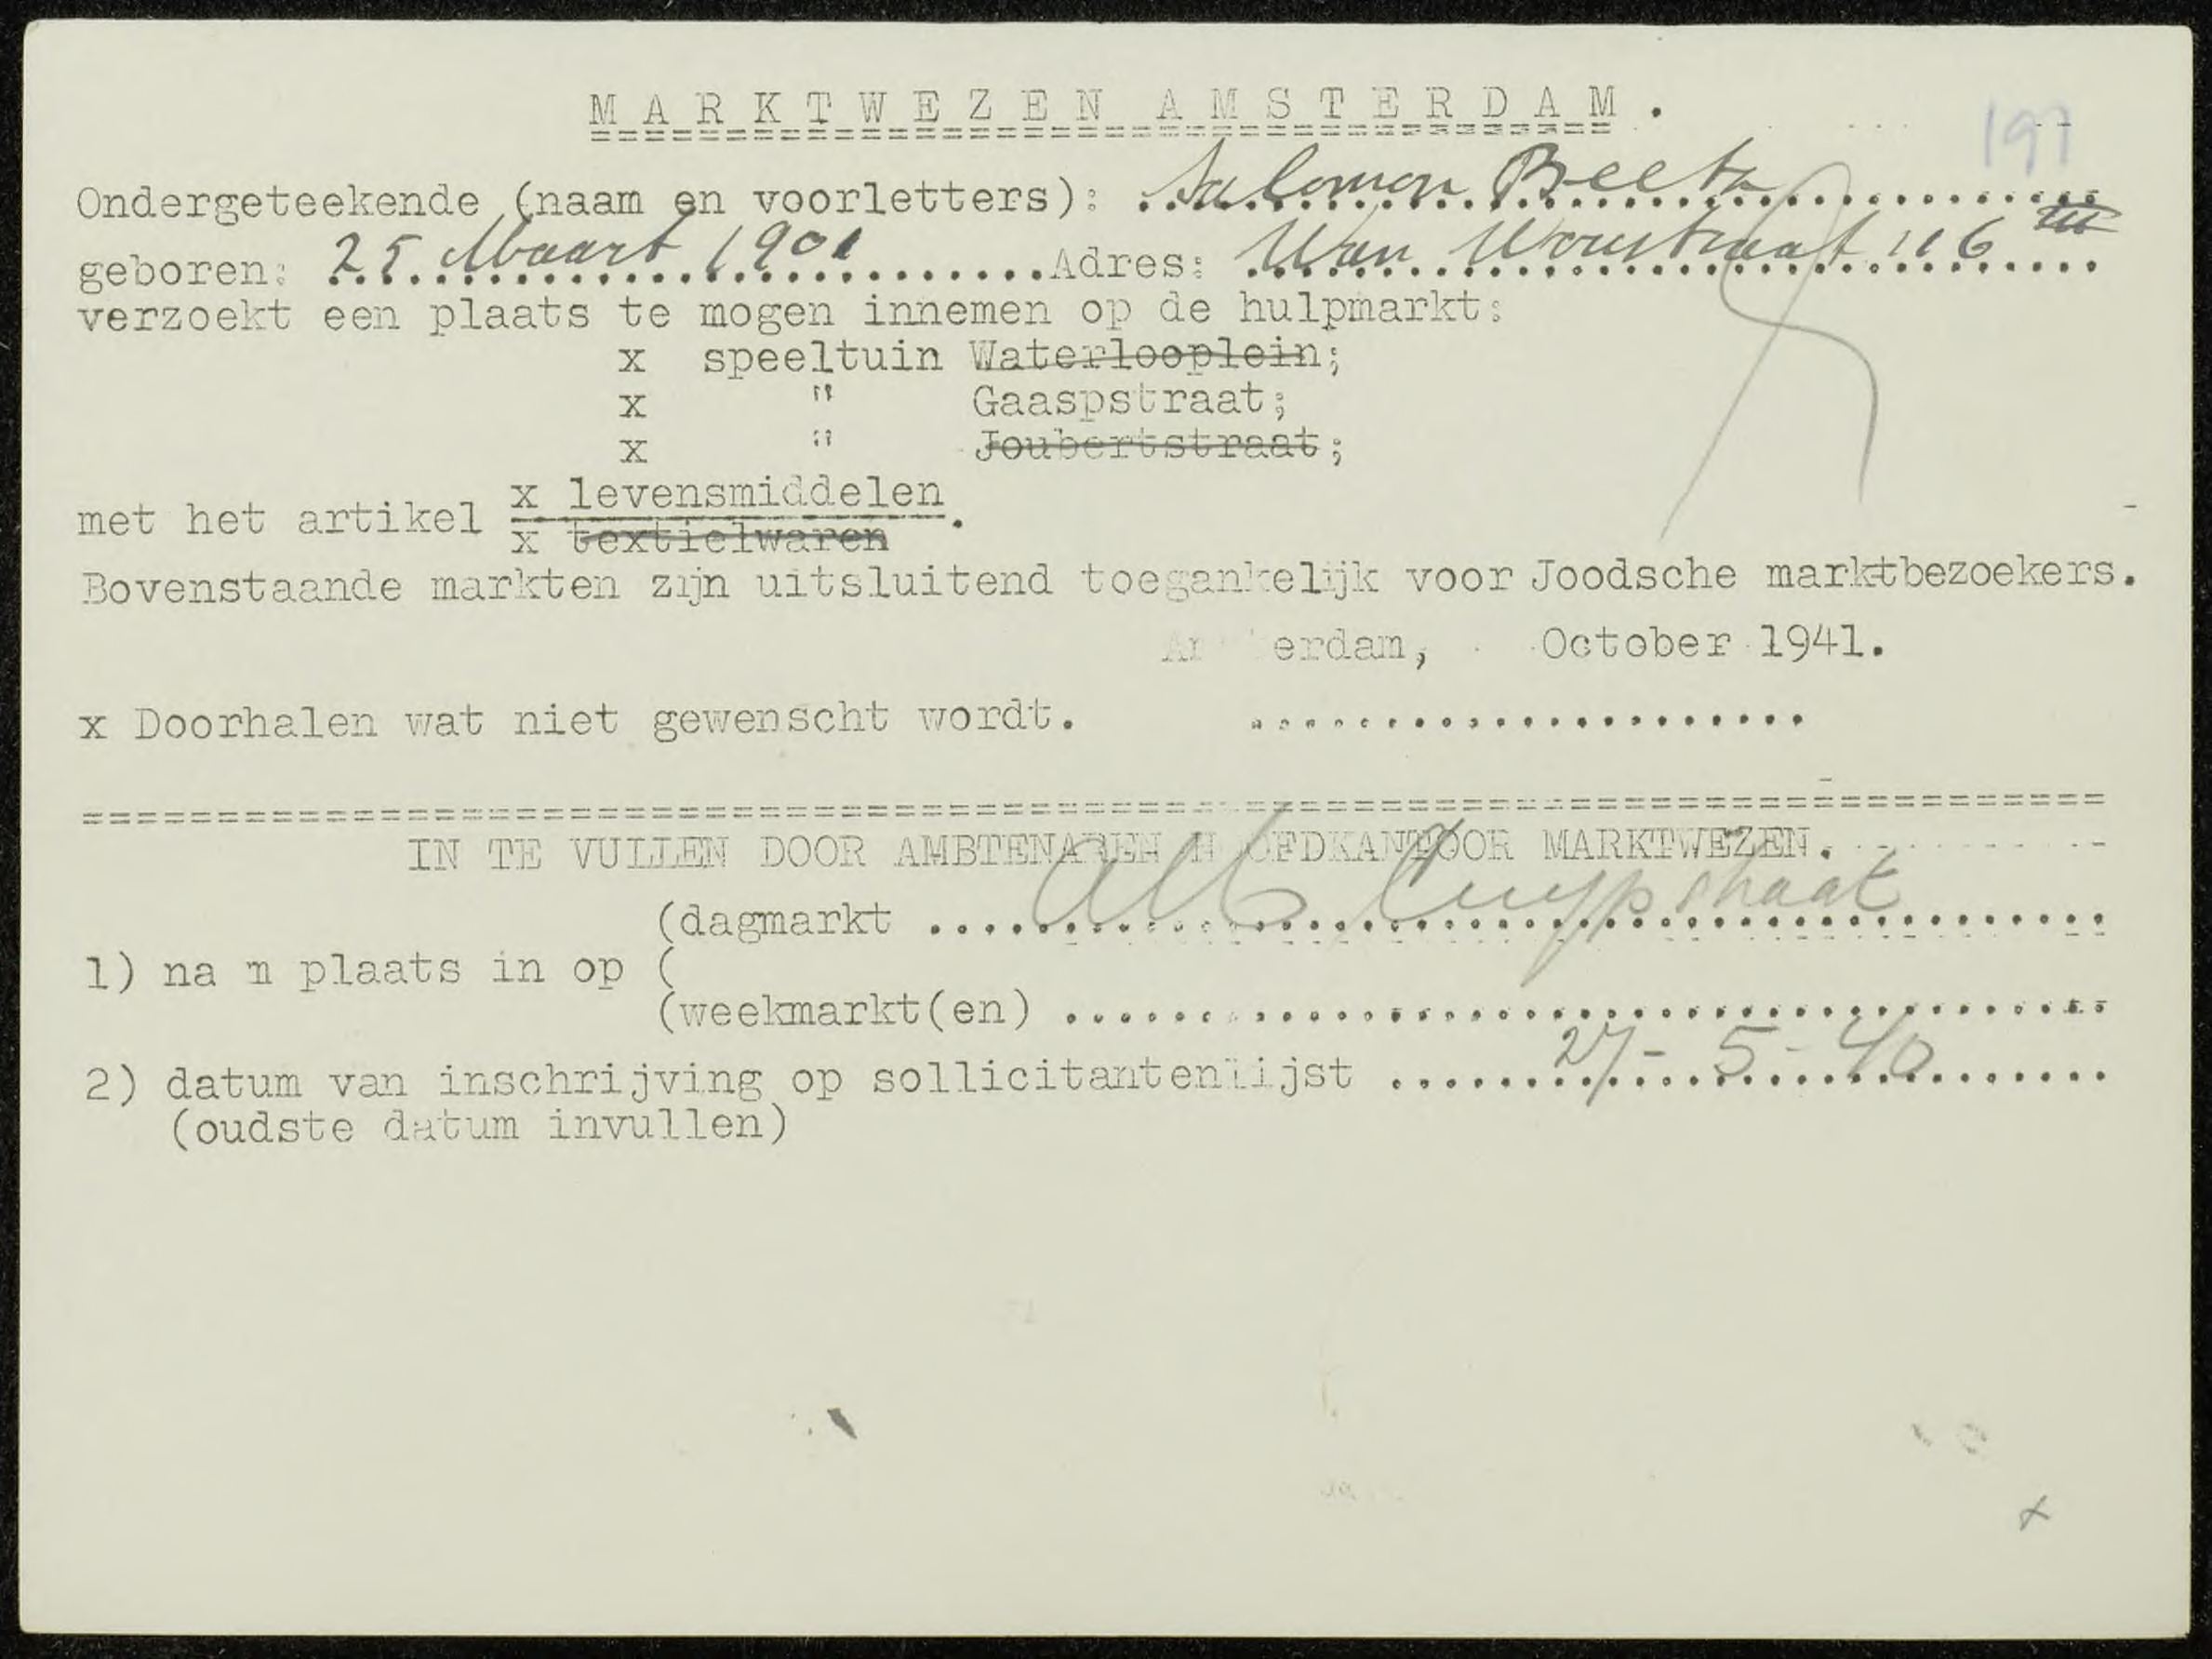 MARKTWEZEN AMSTERDAM.
197
Ondergeteekende (naam en voorletters): Salomon Beetz
geboren: 25 Maart 1901 Adres: Van Woustraat 116 III
verzoekt een plaats te mogen innemen op de hulpmarkt:
x speeltuin Waterlooplein;
x " Gaaspstraat;
x " Joubertstraat;
met het artikel x levensmiddelen
x textielwaren.
Bovenstaande markten zijn uitsluitend toegankelijk voor Joodsche marktbezoekers.
Amsterdam, October 1941.
x Doorhalen wat niet gewenscht wordt. ....................
IN TE VULLEN DOOR AMBTENAREN HOOFDKANTOOR MARKTWEZEN.
(dagmarkt Alb Cuypstraat
1) na m plaats in op (
(weekmarkt(en) ....................
2) datum van inschrijving op sollicitantenlijst 27-5-40
(oudste datum invullen)
x